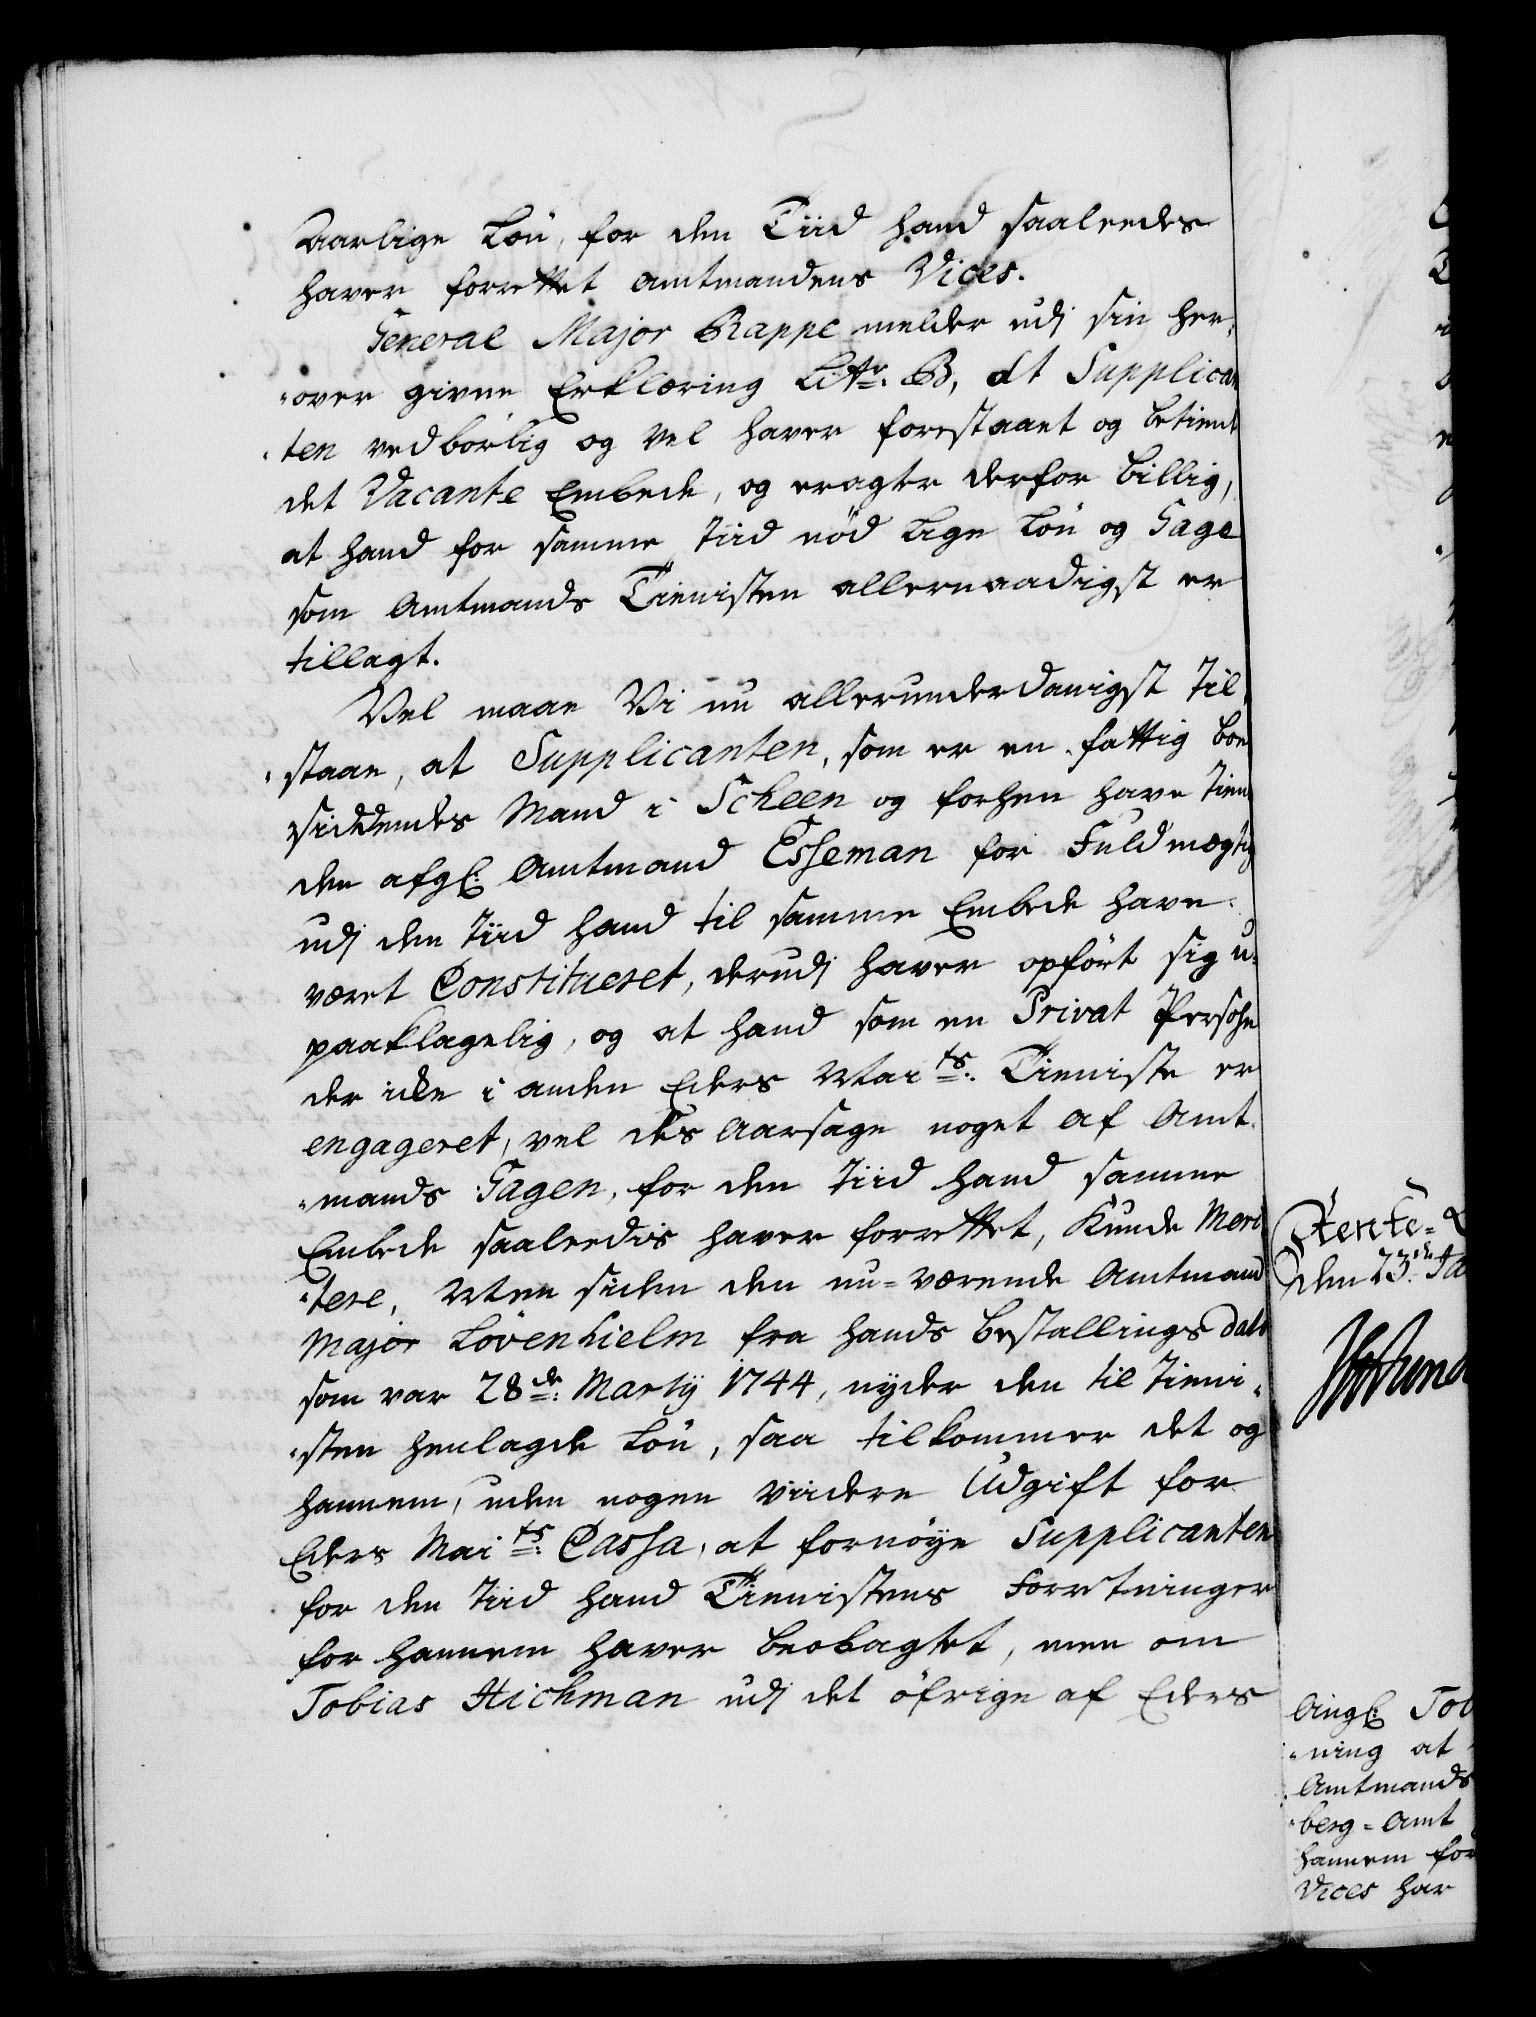 Aarlige Løn, for den Tiid hand saaleedes
haver forrettet Amtmandens Vices.
General Major Rappe melder udj sin her,
"over givne Erklæring Littr: B, at Supplican
"ten vedbørlig og vel haver forestaaet og betient
det Vacante Embede, og eragter derfor billig,
at hand for samme Tiid nød lige Løn og Gage
som Amtmands Tienisten allernaadigst er
tillagt.
Vel maae Vi nu allerunderdanigst til,
"staae, at Supplicanten, som er en fattig boe
siddendes Mand i Scheen og forhen have tient
den afgl: Amtmand Esseman for Fuldmægtig
udj den Tiid hand til samme Embede have
været Constitueret, derudj haver opført sig u=
paaklagelig, og at hand som en Privat Persohn
der icke i anden Eders Maits: Tieniste er
engageret, vel des Aarsage noget af Amt
"mands Gagen, for den Tiid hand samme
Embede saaleedis haver forrettet, Kunde Meri
"tere, Men siden den nu=værende Amtmand
Major Lövenhielm fra hands Bestallings dato
som var 28de: Martij 1744, nyder den til Tieni,
"sten henlagde Løn, saa tilkommer det og
hannem, uden nogen viidere Udgift for
Eders Maits: Cassa, at fornøye Supplicanten
for den Tiid hand Tienistens Forretninger
for hannem haver beobagtet, men om
Tobias Hichman udj det öfrige af Eders
Rente=
den 23de Ja
Angl: Tob
"ning at
Amtmands
"berg=Amt
hannem for
Vices har